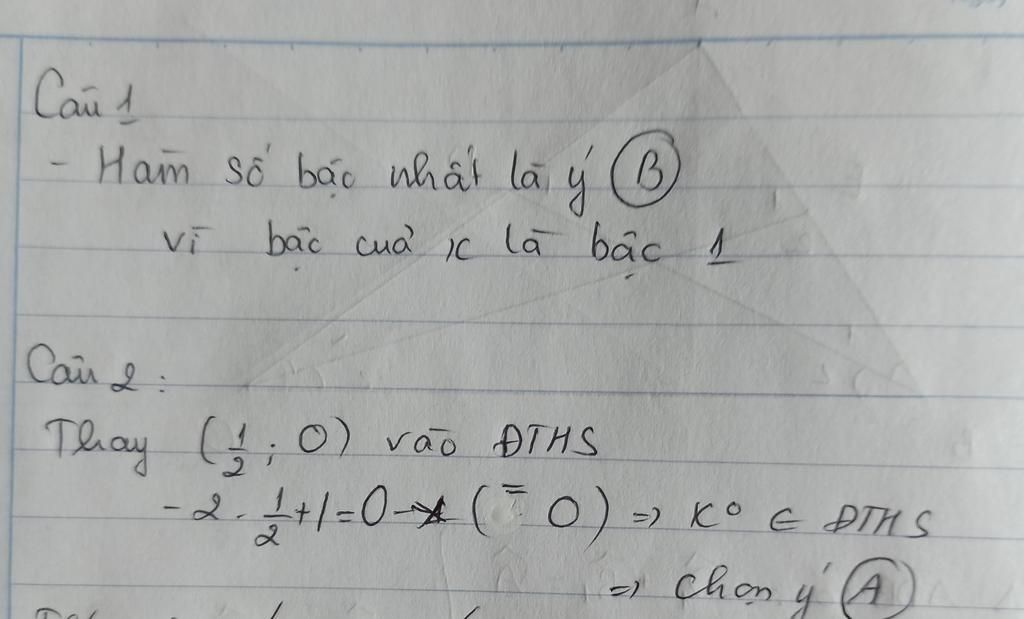 Câu 1
- Hàm số bậc nhất là ý B
vì bậc của x là bậc 1
Câu 2 :
Thay (1/2 ; 0) vào ĐTHS
-2 . 1/2 + 1 = 0 → ( = 0 ) => K° ∈ ĐTHS
=> Chọn ý A